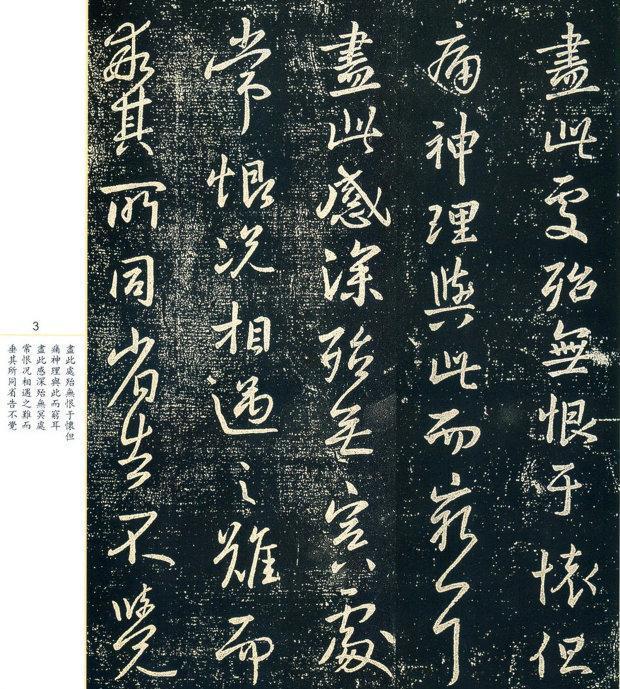 盡此處殆無恨于懷但
痛神理與此而窮耳
盡此感深殆無冥處
常恨況相遇之難而
乖其所同省告不覺
3
盡此處殆無恨于懷但
痛神理與此而窮耳
盡此感深殆無冥處
常恨况相遇之難而
垂其所同省告不覺